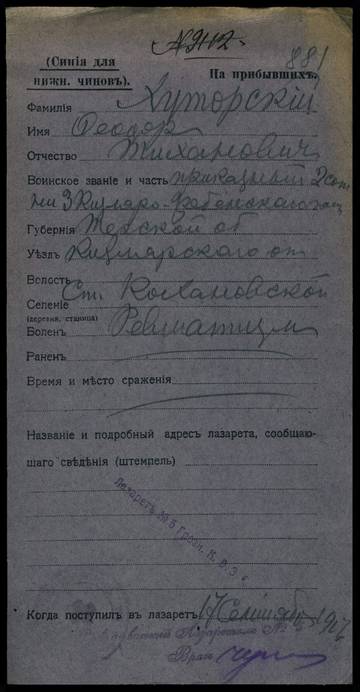 № 9112
881
(Синія для
нижн. чиновъ).
На прибывшихъ.
Фамилія Хуторскій
Имя Ѳеодоръ
Отчество
Воинское званіе и часть приказный 2 сот
ни 3 Кизляро-Гребенскаго каз
Губернія Терской об
Уѣздъ Кизлярскаго от
Волость
Селеніе Ст. Кохановской
(деревня, станица)
Боленъ Ревматизм
Раненъ
Время и мѣсто сраженія
Названіе и подробный адресъ лазарета, сообщаю-
щаго свѣдѣнія (штемпель)
Лазаретъ № 5
Когда поступилъ въ лазаретъ 17 Сентября 1916
Врач